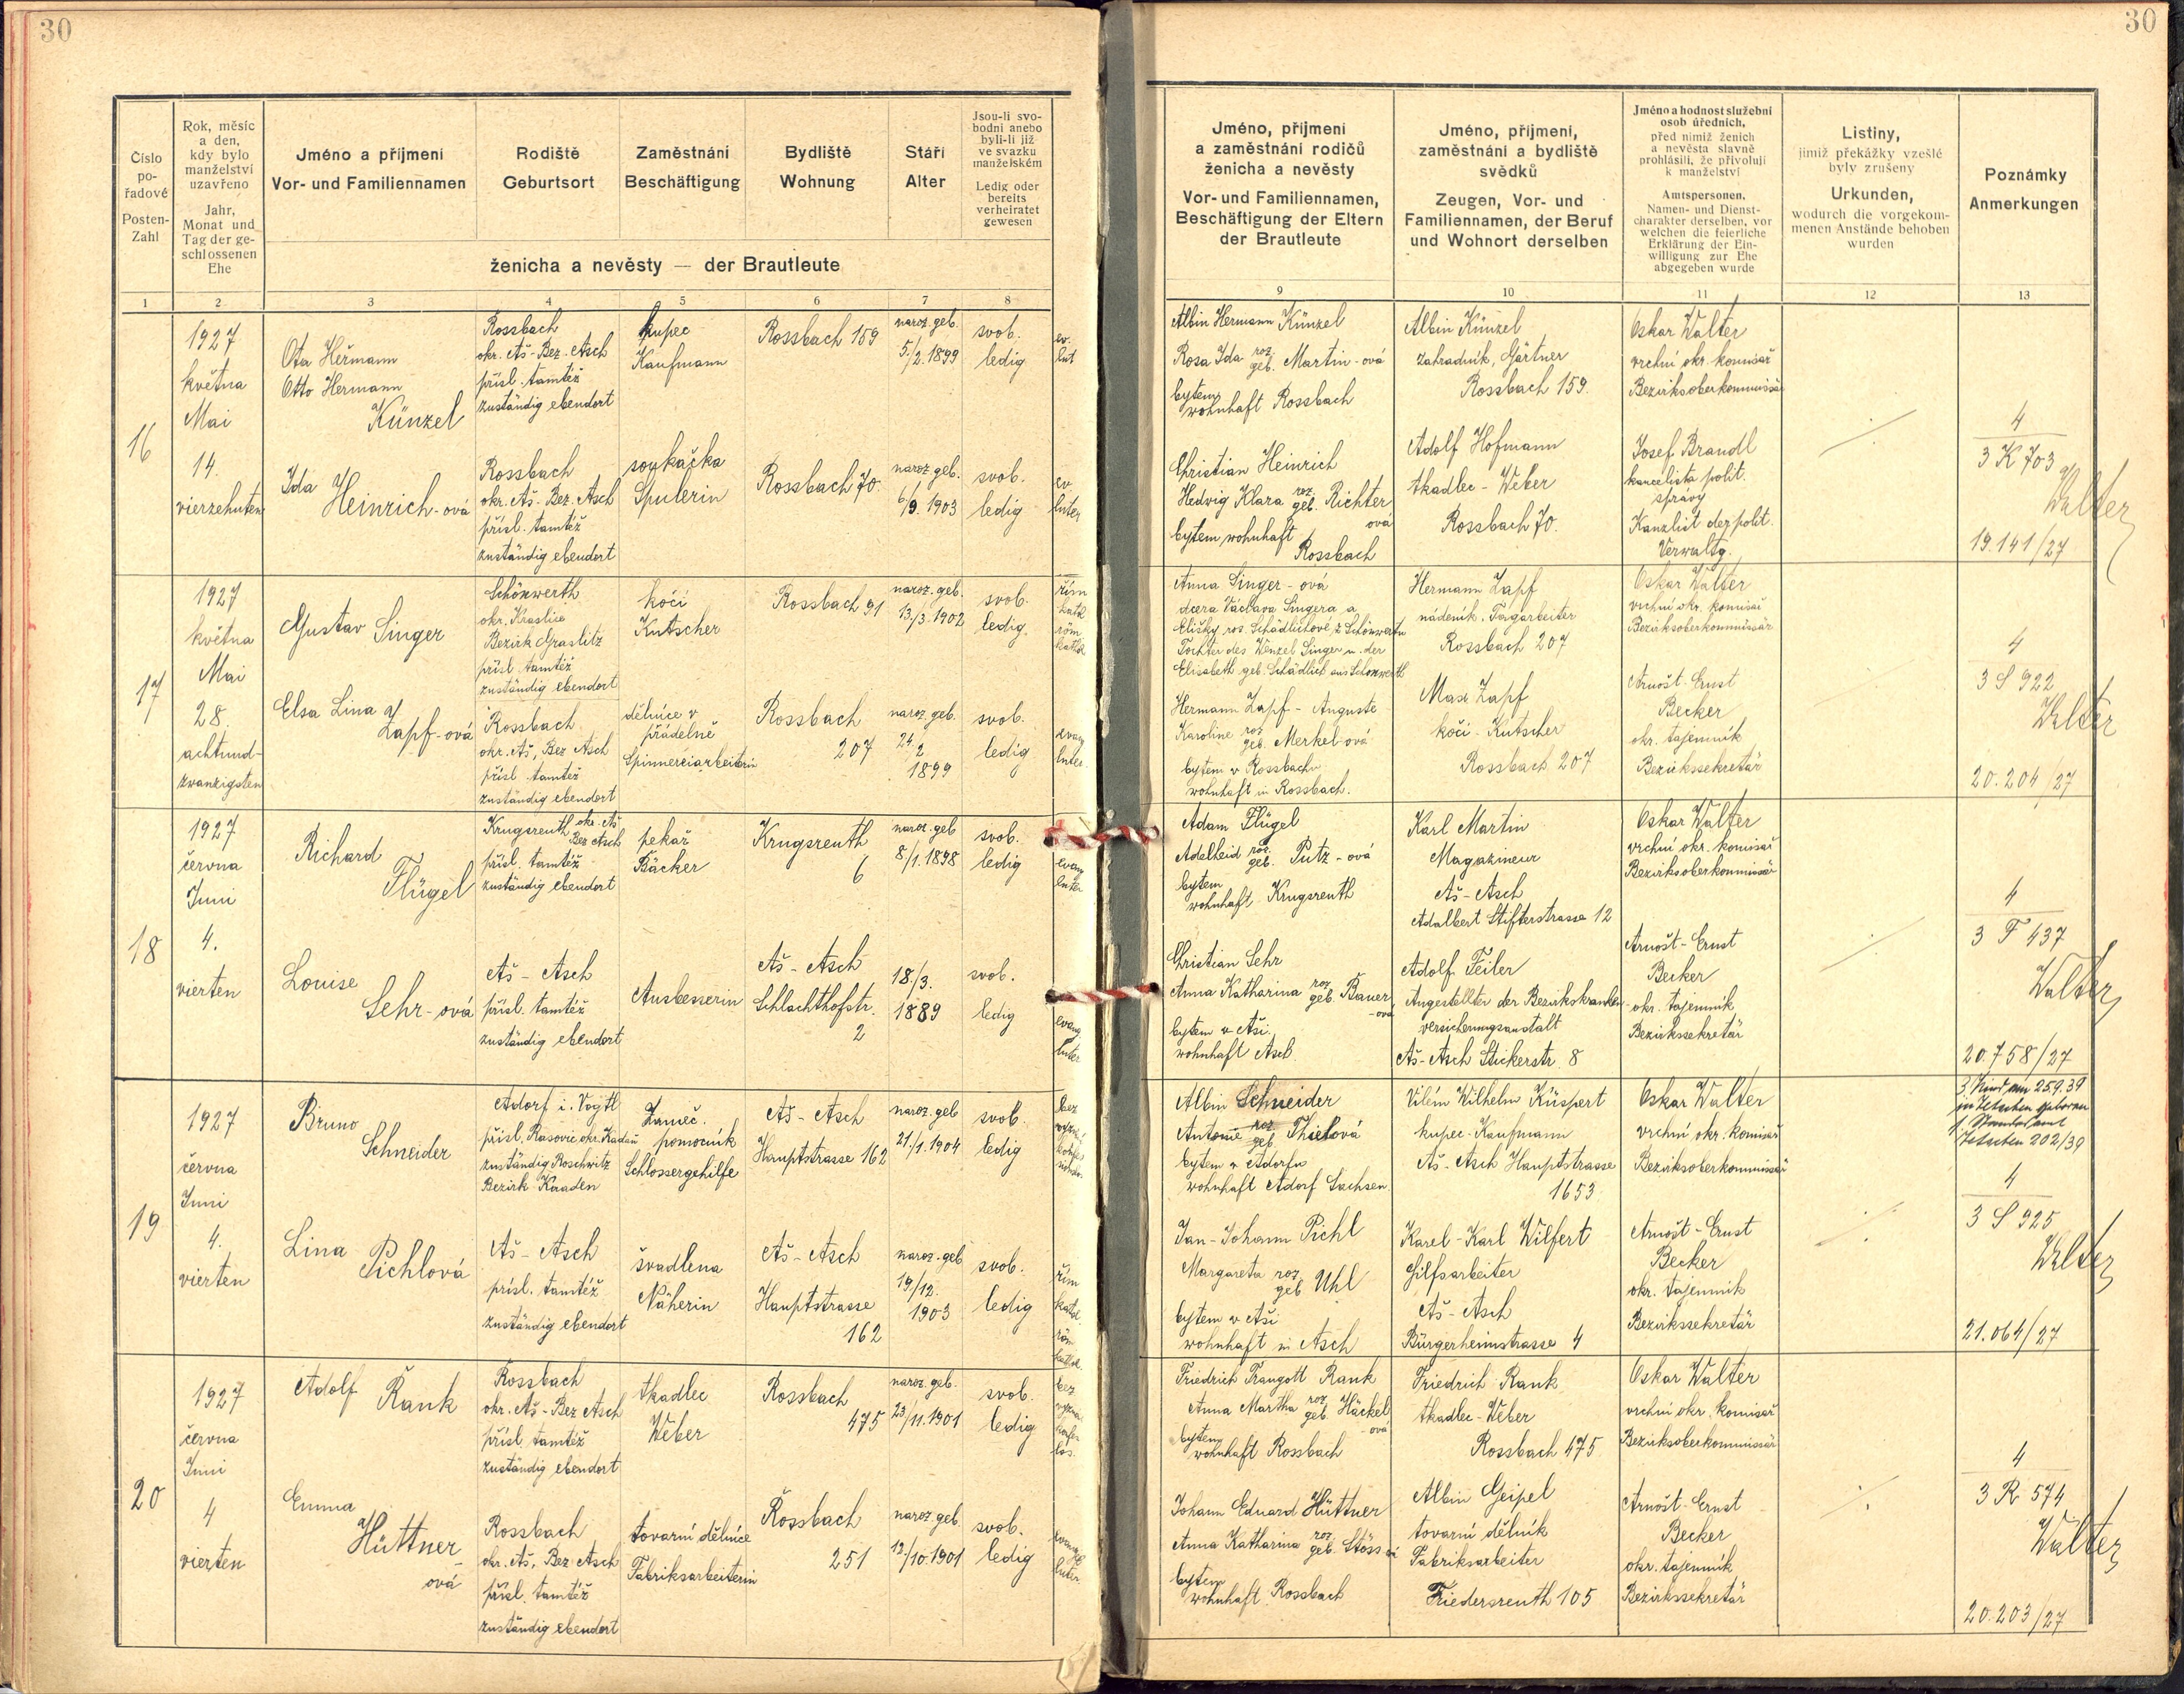 30
30
Číslo
po-
řadové
Posten-
Zahl
Rok, měsíc
a den,
kdy bylo
manželství
uzavřeno
Jahr,
Monat und
Tag der ge-
schlossenen
Ehe
Jméno a příjmení
Vor- und Familiennamen
Rodiště
Geburtsort
Zaměstnání
Beschäftigung
Bydliště
Wohnung
Stáří
Alter
Jsou-li svo-
bodni anebo
byli-li již
ve svazku
manželském
Ledig oder
bereits
verheiratet
gewesen
ženicha a nevěsty — der Brautleute
Jméno, příjmení
a zaměstnání rodičů
ženicha a nevěsty
Vor- und Familiennamen,
Beschäftigung der Eltern
der Brautleute
Jméno, příjmení,
zaměstnání a bydliště
svědků
Zeugen, Vor- und
Familiennamen, der Beruf
und Wohnort derselben
Jméno a hodnost služební
osob úředních,
před nimiž ženich
a nevěsta slavně
prohlásili, že přivolují
k manželství
Amtspersonen,
Namen- und Dienst-
charakter derselben, vor
welchen die feierliche
Erklärung der Ein-
willigung zur Ehe
abgegeben wurde
Listiny,
jimiž překážky vzešlé
byly zrušeny
Urkunden,
wodurch die vorgekom-
menen Anstände behoben
wurden
Poznámky
Anmerkungen
1 2 3 4 5 6 7 8 9 10 11 12 13
16
1927
května
Mai
14.
vierzehnten
Ota Heřmann
Otto Hermann
Künzel
Rossbach
okr. Aš - Bez. Asch
přísl. tamtéž
zuständig ebendort
kupec
Kaufmann
Rossbach 159
naroz. geb.
5./2. 1899
svob.
ledig
ev.
lut
Albin Hermann Künzel
Rosa Ida roz. geb. Martin-ová
bytem
wohnhaft Rossbach
Albin Künzel
zahradník, Gärtner
Rossbach 159.
Oskar Walter
vrchní okr. komisař
Bezirksoberkommissär
Ida
Heinrich-ová
Rossbach
okr. Aš - Bez. Asch
přísl. tamtéž
zuständig ebendort
soukačka
Spulerin
Rossbach 70.
naroz. geb.
6./9. 1903
svob.
ledig
ev
luter
Christian Heinrich
Hedvig Klara roz. geb. Richter
ová
bytem wohnhaft
Rossbach
Adolf Hofmann
tkadlec - Weber
Rossbach 70.
Josef Brandl
kancelista polit.
správy
Kanzlist der polit.
Verwaltg.
4
3 K 703
Walter
19.141/27
17
1927
května
Mai
28.
achtund-
zwanzigsten
Gustav Singer
Schönwerth
okr. Kraslice
Bezirk Graslitz
přísl. tamtéž
zuständig ebendort
kočí
Kutscher
Rossbach 91
naroz. geb.
13./3. 1902
svob.
ledig.
řím
kath
röm
kathol
Anna Singer-ová
dcera Václava Singera a
Elišky roz. Schädlichové z Schönwerthu
Tochter des Wenzel Singer u. der
Elisabeth geb. Schädlich aus Schönwerth
Hermann Zapf
nádeník. Tagarbeiter
Rossbach 207
Oskar Walter
vrchní okr. komisař
Bezirksoberkommissär
Elsa Lina
Zapf-ová
Rossbach
okr. Aš, Bez Asch
přísl. tamtéž
zuständig ebendort
dělnice v
přádelně
Spinnereiarbeiterin
Rossbach
207
naroz. geb.
24.
2
1899
svob.
ledig
evang
luter.
Hermann Zapf - Auguste
Karoline roz geb. Merkel-ová
bytem v Rossbachu
wohnhaft in Rossbach.
Max Zapf
kočí - Kutscher
Rossbach 207
Arnošt - Ernst
Becker
okr. tajemník
Bezirkssekretär
4
3 S 922
Walter
20.204/27
18
1927
června
Juni
4.
vierten
Richard
Flügel
Krugsreuth okr. Aš
Bez Asch
přísl. tamtéž
zuständig ebendort
pekař
Bäcker
Krugsreuth
6
naroz. geb
8/1. 1898
svob.
ledig
evang
luter
Adam Flügel
Adelheid roz. geb. Putz-ová
bytem
wohnhaft Krugsreuth
Karl Martin
Magazineur
Aš - Asch
Adalbert Stifterstrasse 12
Oskar Walter
vrchní okr. komisař
Bezirksoberkommissär
Louise
Sehr-ová
Aš - Asch
přísl. tamtéž
zuständig ebendort
Ausbesserin
Aš - Asch
Schlachthofstr.
2
18./3.
1889
svob.
ledig
evang
luter
Christian Sehr
Anna Katharina roz. geb. Bauer
-ová
bytem v Aši.
wohnhaft Asch.
Adolf Feiler
Angestellter der Bezirkskranken-
versicherungsanstalt
Aš - Asch Stickerstr. 8
Arnošt - Ernst
Becker
okr. tajemník
Bezirkssekretär
4
3 F 437
Walter
20.758/27
19
1927
června
Juni
4.
vierten
Bruno
Schneider
Adorf i. Vogtl
přísl. Rašovic okr. Kadaň
zuständig Roschwitz
Bezirk Kaaden
Zámeč.
pomocník
Schlossergehilfe
Aš - Asch
Hauptstrasse 162
naroz. geb
21/1. 1904
svob.
ledig
bez
Albin Schneider
Antonie roz geb. Thielová
bytem v Adorfu
wohnhaft Adorf Sachsen.
Vilém Wilhelm Küspert
kupec - Kaufmann
Aš - Asch Hauptstrasse
1653.
Oskar Walter
vrchní okr. komisař
Bezirksoberkommissär
3. Kind am 25.9.39
in Tetschen geboren
Standesamt
Tetschen 202/39
Lina
Pichlová
Aš - Asch
přísl. tamtéž
zuständig ebendort
švadlena
Näherin
Aš - Asch
Hauptstrasse
162
naroz. geb
19/12.
1903
svob.
ledig
řím
katol.
röm
kathol.
Jan - Johann Pichl
Margareta roz geb Uhl
bytem v Aši
wohnhaft in Asch
Karel - Karl Wilfert
Hilfsarbeiter
Aš - Asch
Bürgerheimstrasse 4
Arnošt - Ernst
Becker
okr. tajemník
Bezirkssekretär
4
3 S 925
Walter
21.064/27
20
1927
června
Juni
4
vierten
Adolf Rank
Rossbach
okr. Aš - Bez Asch
přísl. tamtéž
zuständig ebendort
tkadlec
Weber
Rossbach
475
naroz. geb.
23/11. 1901
svob.
ledig
bez
vyznání
konfes
los.
Friedrich Traugott Rank
Anna Martha roz geb. Häckel
-ová
bytem
wohnhaft Rossbach
Friedrich Rank
tkadlec - Weber
Rossbach 475
Oskar Walter
vrchní okr. komisař
Bezirksoberkommissär
Emma
Hüttner-
ová
Rossbach
okr. Aš, Bez Asch
přísl. tamtéž
zuständig ebendort
tovarní dělnice
Fabriksarbeiterin
Rossbach
251
naroz. geb.
12./10. 1901
svob.
ledig
evang
luter.
Johann Eduard Hüttner
Anna Katharina roz geb. Stöss
bytem
wohnhaft Rossbach
Albin Geipel
tovarní dělník
Fabriksarbeiter
Friedersreuth 105
Arnošt - Ernst
Becker
okr. tajemník
Bezirkssekretär
4
3 R 574
Walter
20.203/27